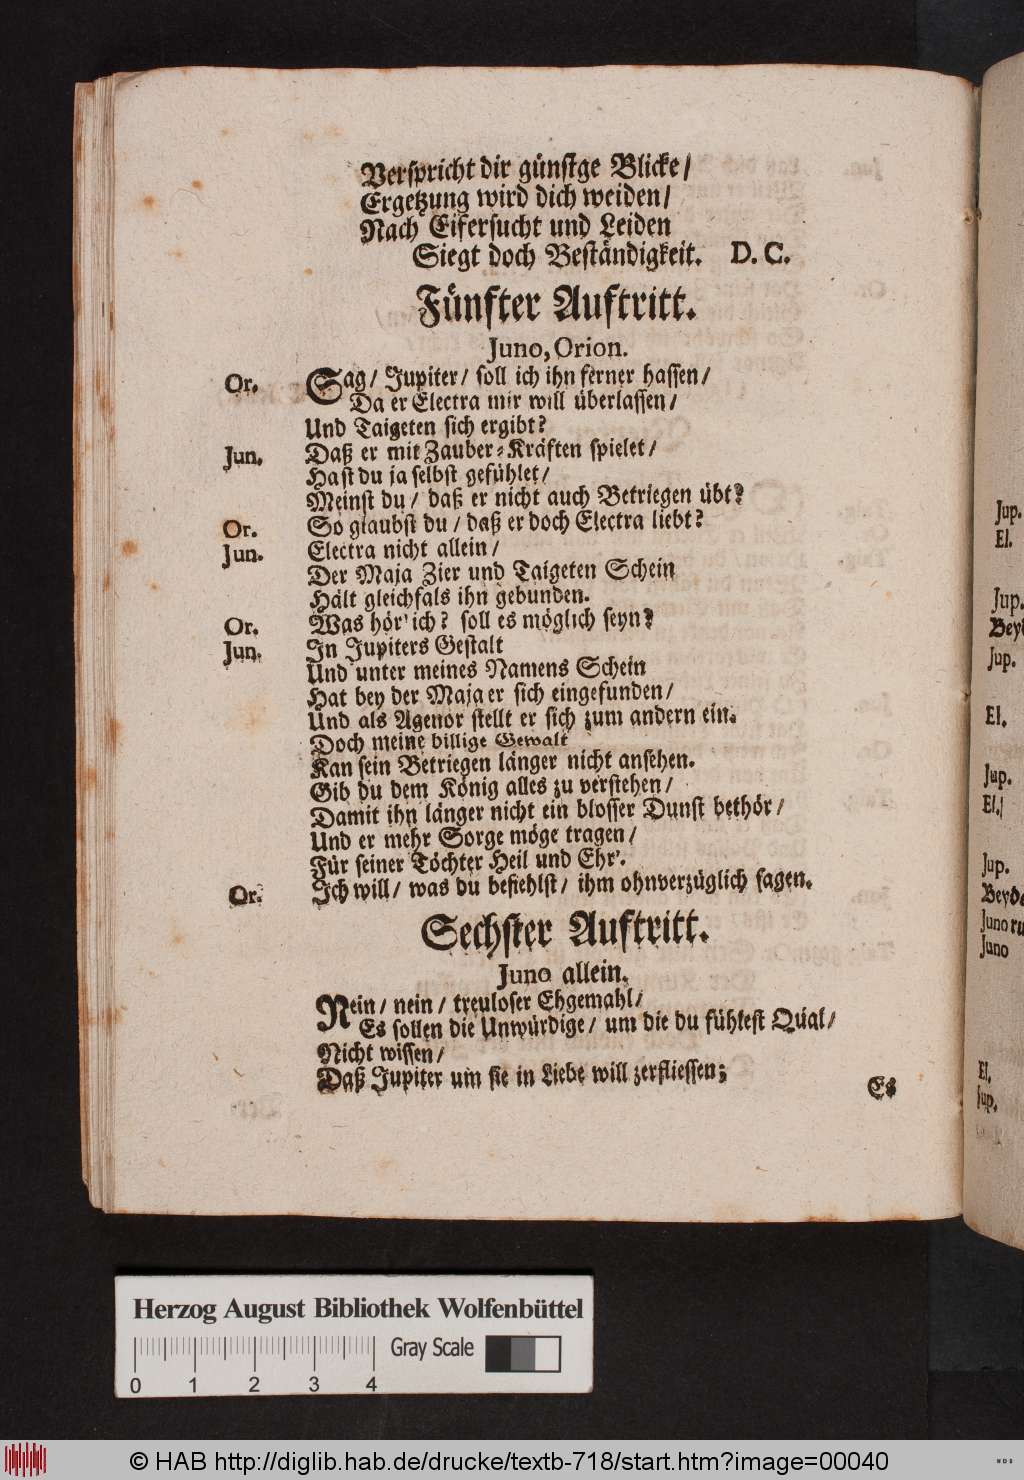 Verspricht dir günstge Blicke/
Ergetzung wird dich weiden/
Nach Eifersucht und Leiden
Siegt doch Beständigkeit. D. C.
Fünfter Auftritt.
Juno, Orion.
Or. Sag/ Jupiter/ soll ich ihn ferner hassen/
Da er Electra mir will überlassen/
Und Taigeten sich ergibt?
Jun. Daß er mit Zauber-Kräften spielet/
Hast du ja selbst gefühlet/
Meinst du/ daß er nicht auch Betriegen übt?
Or. So glaubst du/ daß er doch Electra liebt?
Jun. Electra nicht allein/
Der Maja Zier und Taigeten Schein
Hält gleichfals ihn gebunden.
Or. Was hör' ich? soll es möglich seyn?
Jun. In Jupiters Gestalt
Und unter meines Namens Schein
Hat bey der Maja er sich eingefunden/
Und als Agenor stellt er sich zum andern ein.
Doch meine billige Gewalt
Kan sein Betriegen länger nicht ansehen.
Gib du dem König alles zu verstehen/
Damit ihn länger nicht ein blosser Dunst bethör/
Und er mehr Sorge möge tragen/
Für seiner Töchter Heil und Ehr'.
Or. Ich will/ was du befiehlst/ ihm ohnverzüglich sagen.
Sechster Auftritt.
Juno allein.
Nein/ nein/ treuloser Ehgemahl/
Es sollen die Unwürdige/ um die du fühlest Qual/
Nicht wissen/
Daß Jupiter um sie in Liebe will zerfliessen;
Es
Jup.
El.
Jup.
Beyd
Jup.
El.
Jup.
El.
Jup.
Beyde
Juno ru
Juno
El.
Jup.
Herzog August Bibliothek Wolfenbüttel
Gray Scale
0 1 2 3 4
© HAB http://diglib.hab.de/drucke/textb-718/start.htm?image=00040